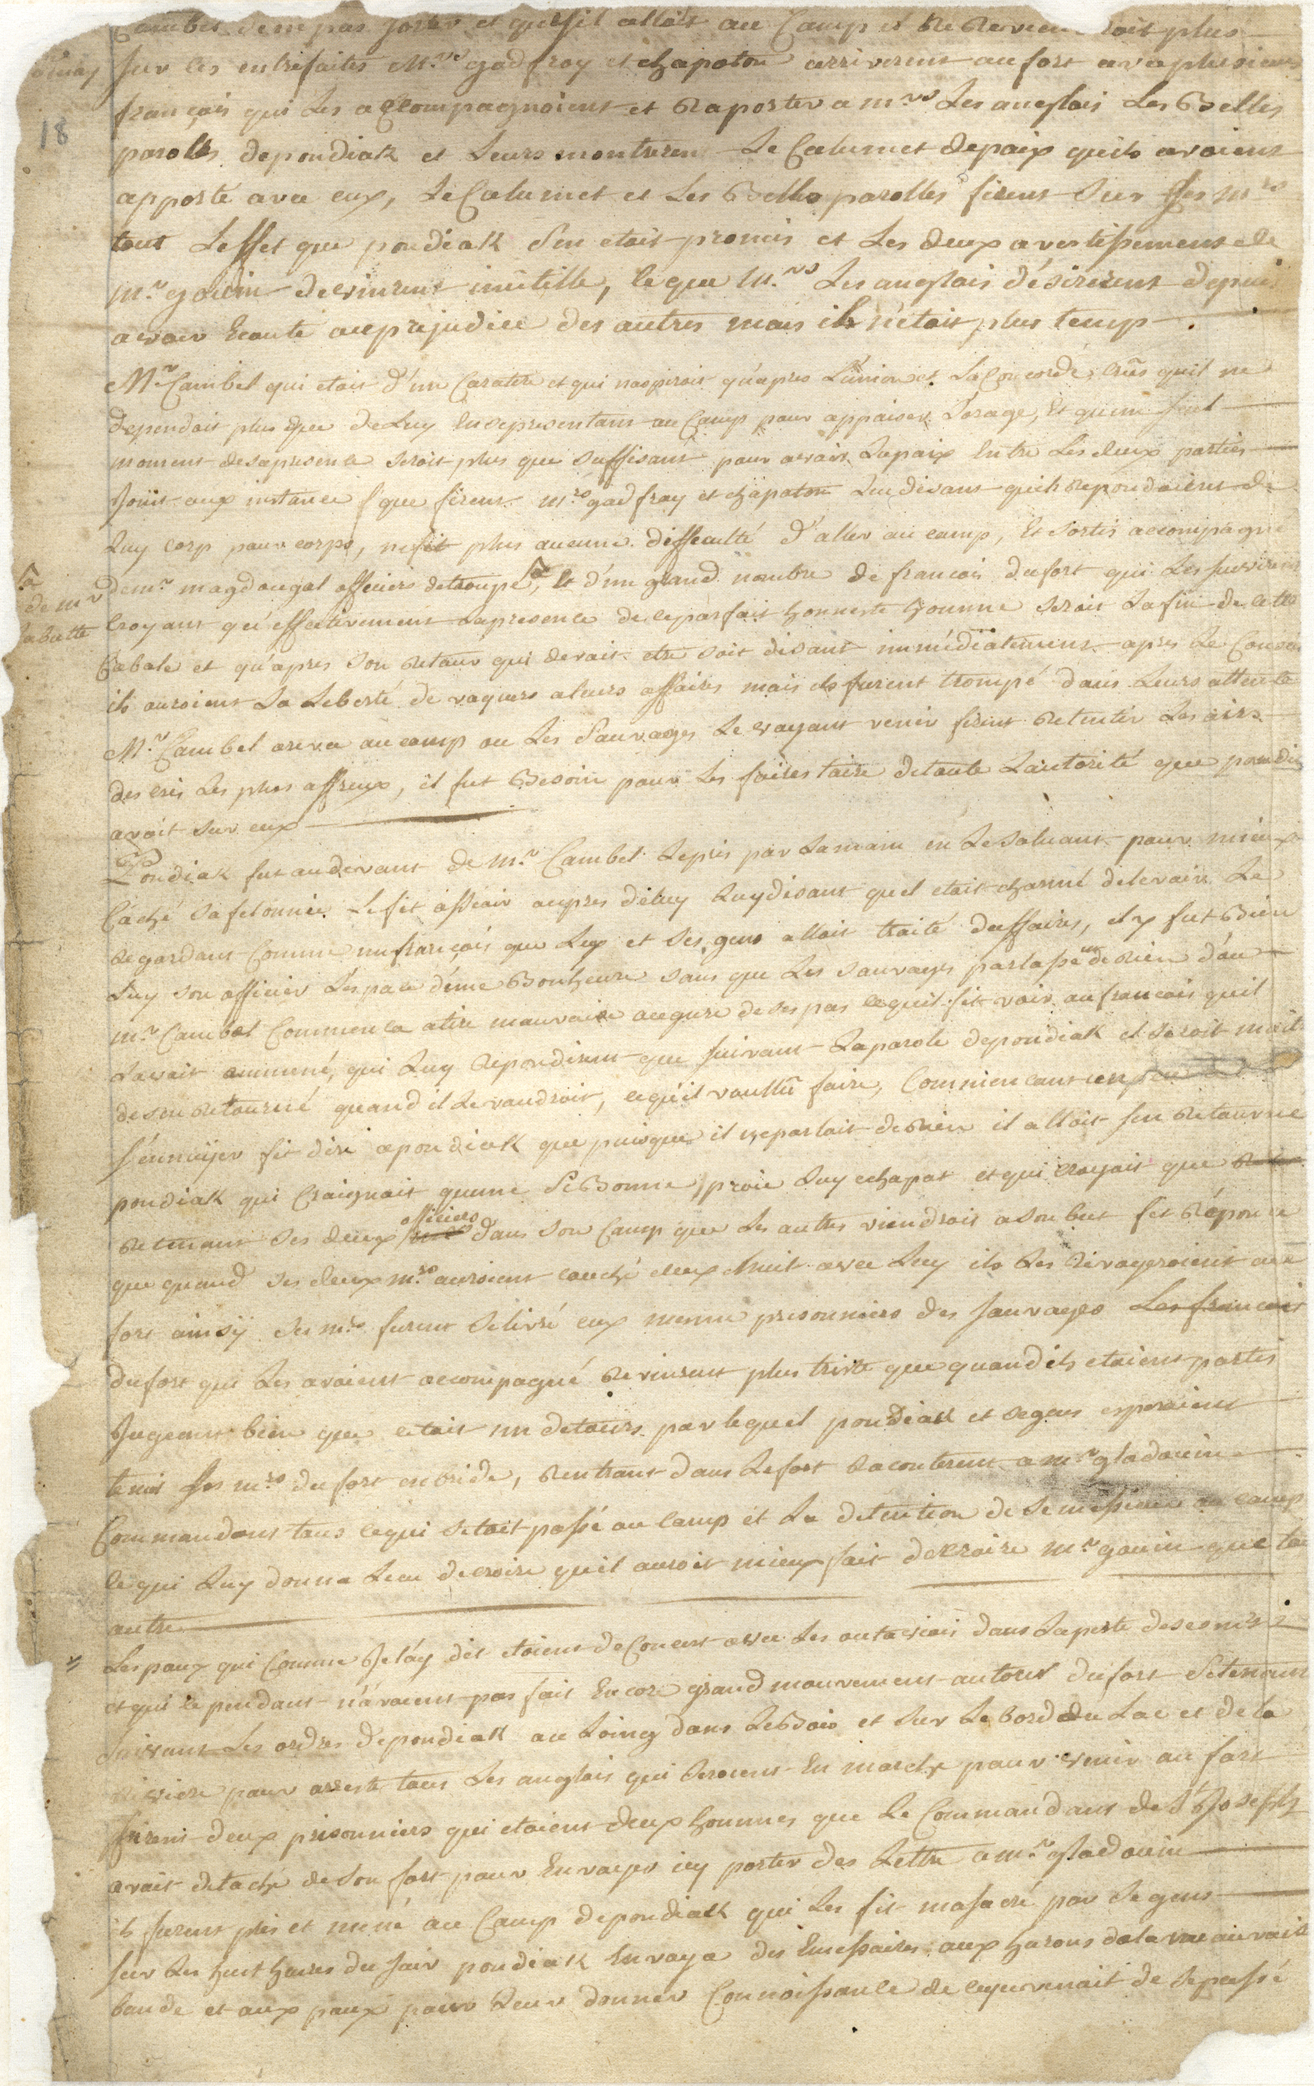 Cambel de ne pas sortir et que s'il alloit au Camp il ne Reviendroit plus
Sur ces entrefaites Mrs gadfroy et chapaton arriverent au fort avec plusieurs
18
français qui Les accompagnoient et Raporter a mrs Les anglois Les Belles
parolles depondiak et Leurs montrerent Le Calumet depaix quils avoient
apporté avec eux, Le Calumet et Les Belles parolles firent Sur Ses mrs
tout Leffet que pondiak s'en etoit promis et Les deux avertissement de
Mr gouin devinrent inutille, ce que Mrs Les anglois désirerent depuis
avoir Ecouté au prejudice des autres mais ils n'etoit plus temp
Mr Cambel qui etoit d'un Caractere et qui naspiroit qu'apres L'union et La Concorde, Crus quil ne
dependoit plus que de Luy En se presentant au Camp pour appaiser L'orage, Et qu'un seul
moment desa presence seroit plus que suffisant pour avoir La paix Entre Les deux parties
Joint aux instance que firent mrs gadfroy et chapaton Luy disant quils repondoient de
Luy corp pour corps, ne fit plus aucune difficulté d'aller au camp, Et sortis accompagné
de mr
labutte
de mr magdougal officiers de troupe, Et d'un grand nombre de francois du fort qui Les suivirent
Croyant qu'effectivement La presence de ce parfait honneste homme seroit La fin de cette
Cabale et qu'apres son Retour qui devoit etre soit disant immédiatement apres Le Conseil
ils auroient La Liberté de vaquers a leurs affaires mais ils furent trompé dans Leurs attente
Mr Cambel arriva au camp ou Les Sauvages Le voyant venir firent Retentir Les airs
des cris Les plus affreux, il fut Besoin pour Les faires taire de toute L'autorité que pondi
avoit sur eux
Pondiak fut audevant de Mr Cambel Le pris par La main en Le saluant pour mieux
Caché sa felonnie Le fit assoir aupres de Luy Luy disant quil etoit charmé de Le voir Le
Regardant Comme un françois que Luy et Ses gens alloit traité daffaires, il y fut Bien
Luy son officier L'espace d'une Bonheure sans que Les sauvages parlasse de Rien d'ou
mr Cambel Commenca a tire mauvaise augure de ses pas ce quil fit voir au francois quil
L'avoit ammené, qui Luy Repondirent que suivant La parole depondiak il seroit maitre
de sen retourné quand il Le voudroit, ce qu'il voullu faire, Commencant un peu
s'ennuijer fit dire a pondiak que puisque il ne parloit de Rien il alloit s'en Retourne
pondiak qui Craignoit qu'une Si Bonne proie Luy echapat et qui croyait que
Retenant Ses deux officiers dans son Camp que Les autres viendroit a son but fit Réponce
que quand Ses deux mrs auroient couché deux Nuit avec Luy ils Les Renvoyeroient au
fort ainsy Ses mrs furent Se livré eux meme prisonniers des sauvages Les francois
du fort qui Les avoient accompagné Revinrent plus triste que quand ils etoient partis
Jugeant bien que c'etoit un detours par lequel pondiak et Se gens esperoient
tenir Ses mrs du fort en bride, Rentrant dans Le fort Raconterent a mr gladouin
Commandant tous ce qui Setoit passé au camp et La detention de Se messieurs au camp
ce qui Luy donna Lieu de croire qu'il auroit mieux fait de croire mr gouin que tou
autre
Les poux qui Comme Je Láy dit etoient de Concert avec Les outavois dans La perte des ennemis
et qui cependant n'avoient pas fait Encore grand mouvement au tour du fort Se tenant
Suivant Les ordres de pondiak au Loing dans Le Bois et Sur Le Bord du Lac et de La
Riviere pour arreste tous Les anglois qui Seroient En marche pour venir au fort
firent deux prisonniers qui etoient deux hommes que Le Commandant de St Joseph
avoit detaché de son fort pour Envoyer icy porter des Lettre a mr gladouin
ils furent pris et mené au Camp de pondiak qui Les fit massacré par Se gens
Sur Les huit heures du soir pondiak Envoya des Emissaires aux hurons de la mauvaise
bande et aux poux pour Leur donner Connoissance de ce qui venoit de Se passé